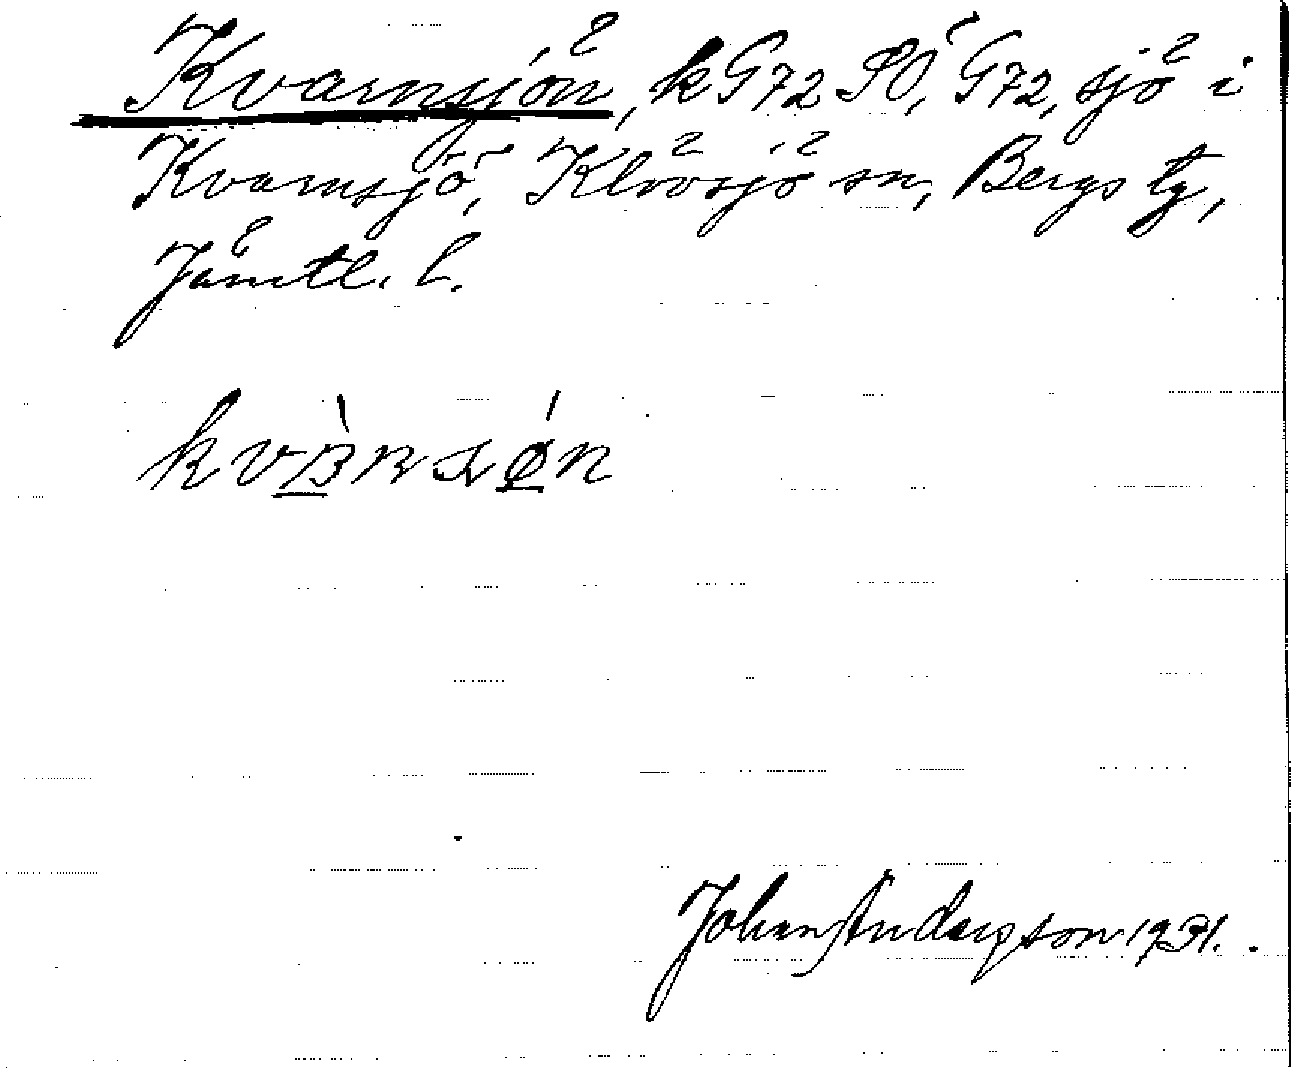 Kvarnsjön, k G72 SO, G72, sjö i
Kvarnsjö, Klövsjö sn, Bergs tg,
Jämtl. l.
Johan Anderson 1931.